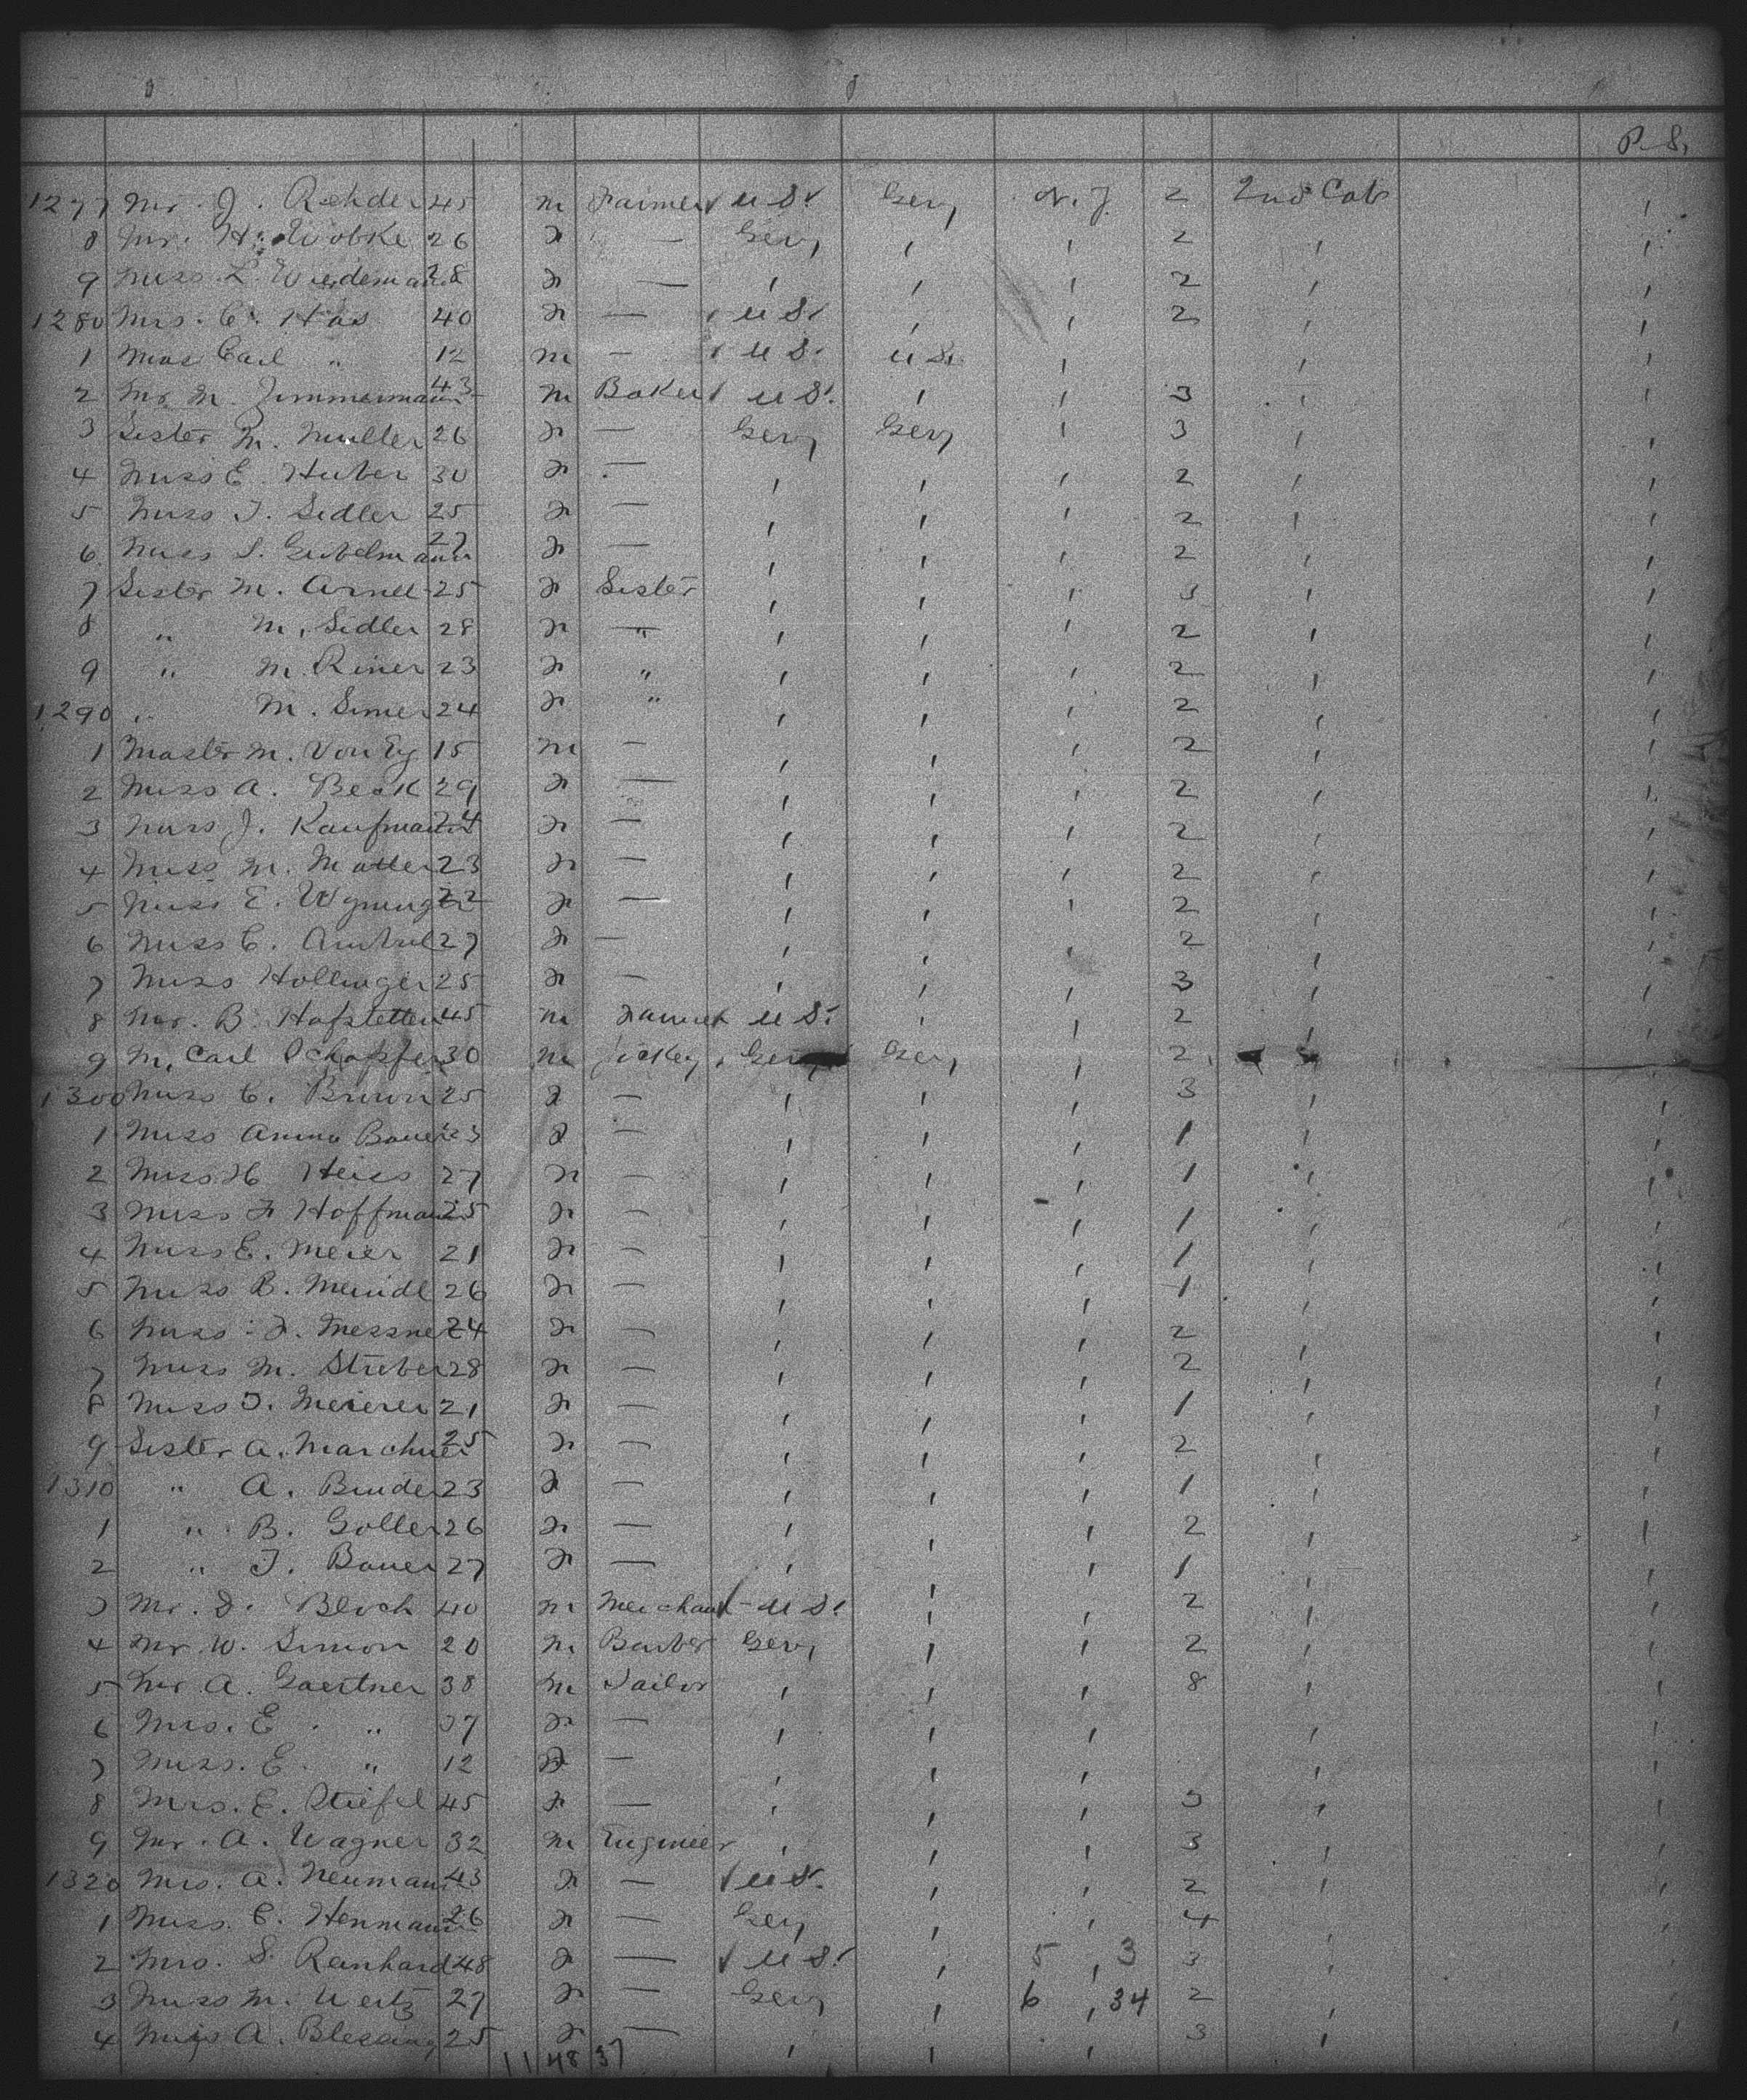 P. S.
1277 Mr. J. Rehder 45 m Farmer U S. Gery N. J. 2 2nd Cab "
8 Mr. H. Wobke 26 f — Gery " " 2 " "
9 Miss L. Wiedemann 28 f — " " " 2 " "
1280 Mrs. C. Has 40 f — U S. " " 2 "
1 Mas Carl " 12 m — U S. U S. " " "
2 Mr M. Zimmermann 43 m Baker U S. " " 3 " "
3 Sister M. Muller 26 f — Gery Gery " 3 " "
4 Miss E. Huber 30 f — " " " 2 " "
5 Miss T. Sidler 25 f — " " " 2 " "
6 Miss S. Gubelmann 27 f — " " " 2 " "
7 Sister M. Arnel 25 f Sister " " " 3 " "
8 " M. Sidler 28 f " " " " 2 " "
9 " M. Riner 23 f " " " " 2 " "
1290 " M. Simer 24 f " " " " 2 " "
1 Master M. Von Ey 15 m — " " " 2 " "
2 Miss A. Beck 29 f — " " " 2 " "
3 Miss J. Kaufmann 24 f — " " " 2 " "
4 Miss M. Matter 23 f — " " " 2 " "
5 Miss E. 22 f — " " " 2 " "
6 Miss C. 27 f — " " " 2 " "
7 Miss Hollinger 25 f — " " " 3 " "
8 Mr. B. Hofstetter 45 m Farmer U S. " " 2 " "
9 M. Carl Schopfer 30 m Jockey Gery Gery " 2 "
1300 Miss C. Brunn 25 f — " " " 3 " "
1 Miss Anna Bauer 23 f — " " " 1 " "
2 Miss H Heiss 27 f — " " " 1 " "
3 Miss F Hoffmann 25 f — " " " 1 " "
4 Miss E. Meier 21 f — " " " 1 " "
5 Miss B. Meindl 26 f — " " " 1 " "
6 Miss F. Messner 24 f — " " " 2 " "
7 Miss M. Struber 28 f — " " " 2 " "
8 Miss T. Meierer 21 f — " " " 1 " "
9 Sister A. Marchner 25 f — " " " 2 " "
1310 " A. Binder 23 f — " " " 1 " "
1 " B. Goller 26 f — " " " 2 " "
2 " T. Bauer 27 f — " " " 1 " "
3 Mr. D. Bloch 40 m Merchant U S. " " 2 " "
4 Mr W. Simon 20 m Barber Gery " " 2 " "
5 Mr. A. Gaertner 38 m Tailor " " " 8 " "
6 Mrs. E. " 37 f — " " " " "
7 Miss. E. " 12 f — " " " " "
8 Mrs. E. Stiefel 45 f — " " " 3 " "
9 Mr. A. Wagner 32 m Engineer " " " 3 " "
1320 Mrs. A. Neumann 43 f — U S. " " 2 " "
1 Miss. C. Henmann 26 f — Gery " " 4 "
2 Mrs. S. Reinhard 48 f — U S. " 5 " 3 3 " "
3 Miss M. Weitz 27 f — Gery " 6 " 34 2 " "
4 Miss A. Blessing 25 f — " " " 3 " "
11 48 37